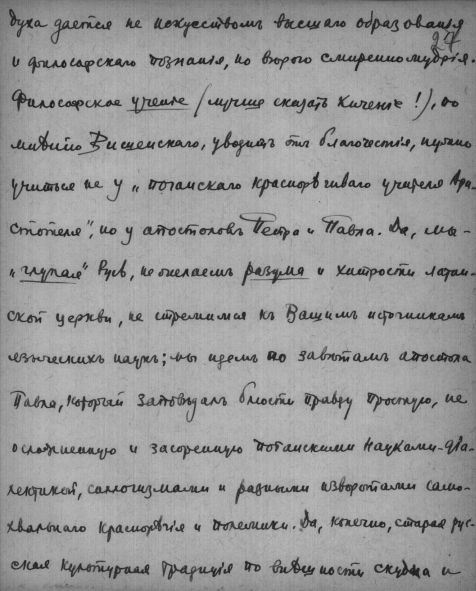 духа дается не искусствомъ высшаго образованія
27
и философскаго познанія, но второго смиренномудрія.
Философское ученіе (лучше сказать киченіе!), по
мнѣнію Вишенскаго, уводитъ отъ благочестія, нужно
учиться не у „поганскаго краснорѣчиваго учителя Ари-
стотеля", но у апостоловъ Петра и Павла. Да, мы —
„глупая" Русь, не желаемъ разума и хитрости латин-
ской церкви, не стремимся къ Вашимъ источникамъ
языческихъ наукъ; мы идемъ по завѣтамъ апостола
Павла, который заповѣдалъ блюсти правду простую, не
осложненную и засоренную поганскими науками – діа-
лектикой, силлогизмами и разными изворотами само-
хвальнаго краснорѣчія и полемики. Да, конечно, старая рус-
ская культурная традиція по внѣшности скудна и